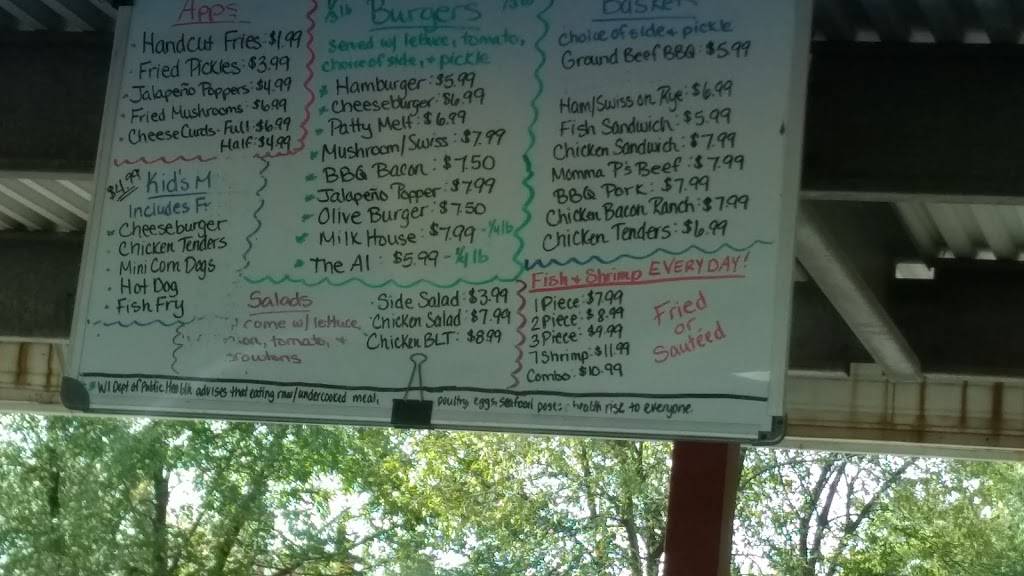 Apps
Handcut Fries $1.99
Fried Pickles: $3.99
Jalapeño Poppers: $4.99
Fried Mushrooms: $6.99
Cheese Curds - Full: $6.99
Half: $4.99
$4.99 Kid's M
Includes Fr
Cheeseburger
Chicken Tenders
Mini Corn Dogs
Hot Dog
Fish Fry
1/3 lb Burgers 1/3 lb
served w/ lettuce, tomato,
choice of side, + pickle
Hamburger: $5.99
Cheeseburger: $6.99
Patty Melt: $6.99
Mushroom/Swiss: $7.99
BBQ Bacon: $7.50
Jalapeño Popper: $7.99
Olive Burger: $7.50
Milk House: $7.99 - 1/4 lb
The Al: $5.99 - 1/4 lb
Salads
come w/ lettuce,
tomato, +
croutons
Side Salad: $3.99
Chicken Salad: $7.99
Chicken BLT: $8.99
Basket
choice of side + pickle
Ground Beef BBQ: $5.99
Ham/Swiss on Rye: $6.99
Fish Sandwich: $5.99
Chicken Sandwich: $7.99
Momma P's Beef: $7.99
BBQ Pork: $7.99
Chicken Bacon Ranch: $7.99
Chicken Tenders: $6.99
Fish + Shrimp EVERY DAY!
1 Piece: $7.99
2 Piece: $8.99
3 Piece: $9.99
7 Shrimp: $11.99
Combo: $10.99
Fried
or
Sauteed
* WI Dept of Public Health advises that eating raw/undercooked meat, poultry, eggs, seafood poses health risk to everyone.